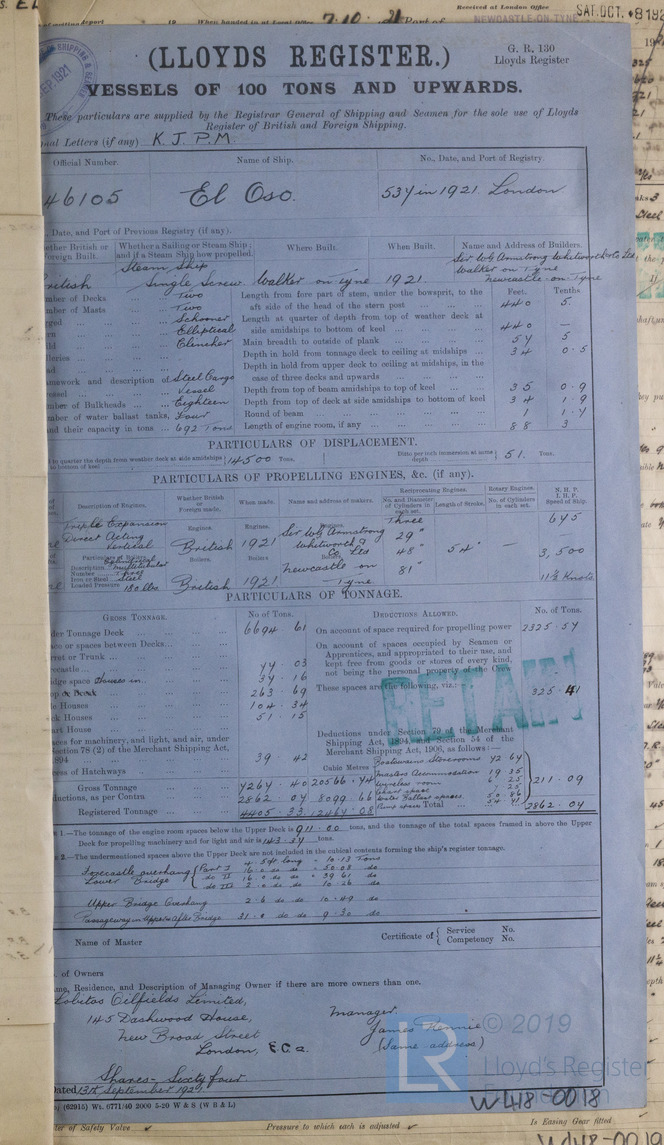 Received at London Office
When handed in at Local Office 7.10.21 Port of NEWCASTLE-ON-TYNE SAT. OCT. 8 192
(LLOYDS REGISTER.)
G. R. 130
Lloyds Register
VESSELS OF 100 TONS AND UPWARDS.
These particulars are supplied by the Registrar General of Shipping and Seamen for the sole use of Lloyds
Register of British and Foreign Shipping.
nal Letters (if any) K J P M
Official Number. Name of Ship. No., Date, and Port of Registry.
46105 El Oso. 537 in 1921 London
, Date, and Port of Previous Registry (if any).
ether British or Foreign Built. Whether a Sailing or Steam Ship; and if a Steam Ship how propelled. Where Built. When Built. Name and Address of Builders.
British Steam Ship Single Screw Walker on Tyne 1921 Sir WG Armstrong Whitworth & Co Ltd Walker on Tyne Newcastle on Tyne
Feet. Tenths.
mber of Decks Two
mber of Masts Two
gged Schooner
rn Elliptical
ild Clencher
lleries
ad
amework and description of vessel Steel Cargo Vessel
mber of Bulkheads Eighteen
mber of water ballast tanks, Four
nd their capacity in tons 692 Tons
Length from fore part of stem, under the bowsprit, to the
aft side of the head of the stern post 440 5
Length at quarter of depth from top of weather deck at
side amidships to bottom of keel 440 —
Main breadth to outside of plank 57 5
Depth in hold from tonnage deck to ceiling at midships 34 0.5
Depth in hold from upper deck to ceiling at midships, in the
case of three decks and upwards
Depth from top of beam amidships to top of keel 35 0.9
Depth from top of deck at side amidships to bottom of keel 34 1.9
Round of beam 1 1.7
Length of engine room, if any 88 3
PARTICULARS OF DISPLACEMENT.
l to quarter the depth from weather deck at side amidships to bottom of keel 14500 Tons.
Ditto per inch immersion at same depth 51. Tons.
PARTICULARS OF PROPELLING ENGINES, &c. (if any).
Description of Engines. Whether British or Foreign made. When made. Name and address of makers. Reciprocating Engines. Rotary Engines. N. H. P.
No. and Diameter of Cylinders in each set. Length of Stroke. No. of Cylinders in each set. I. H. P. Speed of Ship.
Engines. Engines. Engines.
Triple Expansion Direct Acting Vertical British 1921 Sir WG Armstrong Whitworth & Co Ltd Three 29" 48" 81" 54" — 645
Particulars of Boilers. Boilers. Boilers Boilers. 3,500
Description Multitubular
Number
Iron or Steel Steel
Loaded Pressure 180 lbs British 1921 Newcastle on Tyne 11½ Knots
PARTICULARS OF TONNAGE.
GROSS TONNAGE. No of Tons. DEDUCTIONS ALLOWED. No. of Tons.
der Tonnage Deck 6694 61
ace or spaces between Decks
rret or Trunk
ecastle 77 03
dge space Houses in 37 16
op or Break 263 69
e Houses 104 34
ck Houses 51 15
art House
aces for machinery, and light, and air, under
ection 78 (2) of the Merchant Shipping Act,
1894 39 42
ess of Hatchways
Gross Tonnage 7267 40 20566 74
ductions, as per Contra 2862 07 8099 66
Registered Tonnage 4405 33 12467 08
Cubic Metres
On account of space required for propelling power 2325.57
On account of spaces occupied by Seamen or
Apprentices, and appropriated to their use, and
kept free from goods or stores of every kind,
not being the personal property of the Crew
These spaces are the following, viz.:— 325.41
RETAIN
Deductions under Section 79 of the Merchant
Shipping Act, 1894 and Section 54 of the
Merchant Shipping Act, 1906, as follows:—
Boatswains Storerooms 72 67
Masters Accommodation 19 35
Wireless room 6 25
Chart space
Water Ballast spaces 50 86
Pump space 54 71
211.09
Total 2862.07
e 1.—The tonnage of the engine room spaces below the Upper Deck is 911.00 tons, and the tonnage of the total spaces framed in above the Upper
Deck for propelling machinery and for light and air is 143.34 tons.
e 2.—The undermentioned spaces above the Upper Deck are not included in the cubical contents forming the ship's register tonnage.
Forecastle overhang 4.5 ft long = 10.13 Tons
Lower Bridge Part I 16.0 do do = 50.08 do
do II 16.0 do do = 39.61 do
do III 2.0 do do 10.26 do
Upper Bridge Overhang 2.6 do do 10.49 do
Passageway in Uppers after Bridge 31.0 do do 9.30 do
Name of Master Certificate of Service No.
Competency No.
. of Owners
me, Residence, and Description of Managing Owner if there are more owners than one.
Lobitos Oilfields Limited,
145 Dashwood House,
New Broad Street
London, E.C.2.
Manager.
James Rennie
(Same address)
Shares - Sixty four.
Dated 13th September 1921
(62915) Wt. 6771/40 2000 5-20 W & S (W B & L)
LR © 2019
Lloyd's Register
Foundation
W418-0018
ter of Safety Valve Pressure to which each is adjusted Is Easing Gear fitted
W418-0018